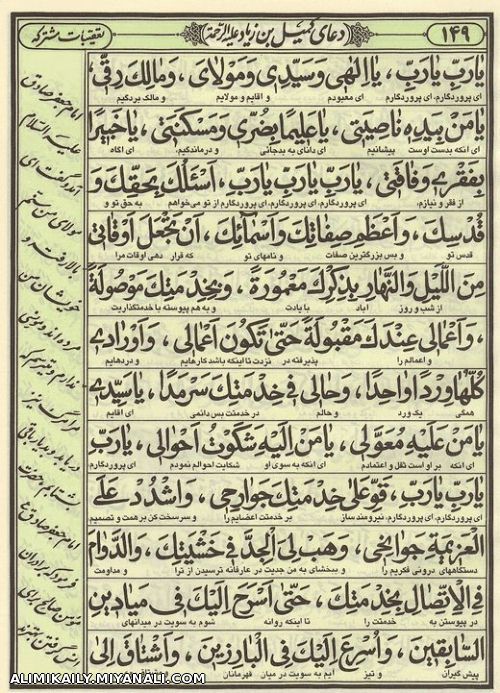 ۱۴۹
دعای کمیل بن زیاد علیه الرحمة
تعقیبات مشترکه
یا رَبِّ یا رَبِّ، یا اِلٰهی وَسَیِّدی وَمَوْلایَ، وَمالِكَ رِقّی،
ای پروردگارم، ای پروردگارم ای معبودم و آقایم و مولایم و مالک بردگیم
یا مَنْ بِیَدِهِ ناصِیَتی، یا عَلیماً بِضُرّی وَمَسْکَنَتی، یا خَبیراً
ای آنکه بدست اوست پیشانیم ای دانای به بدحالی و درماندگیم، ای آگاه
بِفَقْری وَفاقَتی، یا رَبِّ یا رَبِّ یا رَبِّ، اَسْئَلُكَ بِحَقِّكَ وَ
از فقر و نیازم، ای پروردگارم، ای پروردگارم، ای پروردگارم از تو می‌خواهم به حق تو و
قُدْسِكَ، وَاَعْظَمِ صِفاتِكَ وَاَسْمآئِكَ، اَنْ تَجْعَلَ اَوْقاتی
قدس تو و بس بزرگترین صفات و نامهای تو که قرار دهی اوقات مرا
مِنَ اللَّیْلِ وَالنَّهارِ بِذِکْرِكَ مَعْمُورَةً، وَبِخِدْمَتِكَ مَوْصُولَةً
از شب و روز آباد با یادت و به هم پیوسته با خدمتگذاریت
، وَاَعْمالی عِنْدَكَ مَقْبُولَةً حَتّیٰ تَکُونَ اَعْمالی، وَاَوْرادی
و اعمالم را پذیرفته در نزدت تا اینکه باشد کارهایم و وردهایم
کُلُّها وِرْداً واحِداً، وَحالی فی خِدْمَتِكَ سَرْمَداً، یا سَیِّدی
همگی یک ورد و حالم در خدمتت بس دائمی ای آقایم
یا مَنْ عَلَیْهِ مُعَوَّلی، یا مَنْ اِلَیْهِ شَکَوْتُ اَحْوالی، یا رَبِّ
ای آنکه بر اوست ثقل و اعتمادم ای آنکه به سوی او شکایت احوالم نمودم ای پروردگارم
یا رَبِّ یا رَبِّ، قَوِّ عَلیٰ خِدْمَتِكَ جَوارِحی، وَاشْدُدْ عَلَی
ای پروردگارم، ای پروردگارم، نیرومند ساز بر خدمتت اعضایم را و سرسخت کن بر همت و تصمیم
الْعَزیمَةِ جَوانِحی، وَهَبْ لِیَ الْجِدَّ فی خَشْیَتِكَ، وَالدَّوامَ
دستگاههای درونی فکریم را و ببخشای به من جدیت در عارفانه ترسیدن از ترا و مداومت
فِی الْاِتِّصالِ بِخِدْمَتِكَ، حَتّیٰ اَسْرَحَ اِلَیْكَ فی مَیادینِ
در پیوستن به خدمتت را تا اینکه روانه شوم به سویت در میدانهای
السّابِقینَ، وَاُسْرِعَ اِلَیْكَ فِی الْبارِزینَ، وَاَشْتاقَ اِلیٰ
پیش گیران و تیز آیم به سویت در میان قهرمانان
امام جعفر صادق
علیه السلام
مولای من ستم
امام جعفر صادق ع
فرمود که برادران
ALIMIKAILY.MIYANALI.COM